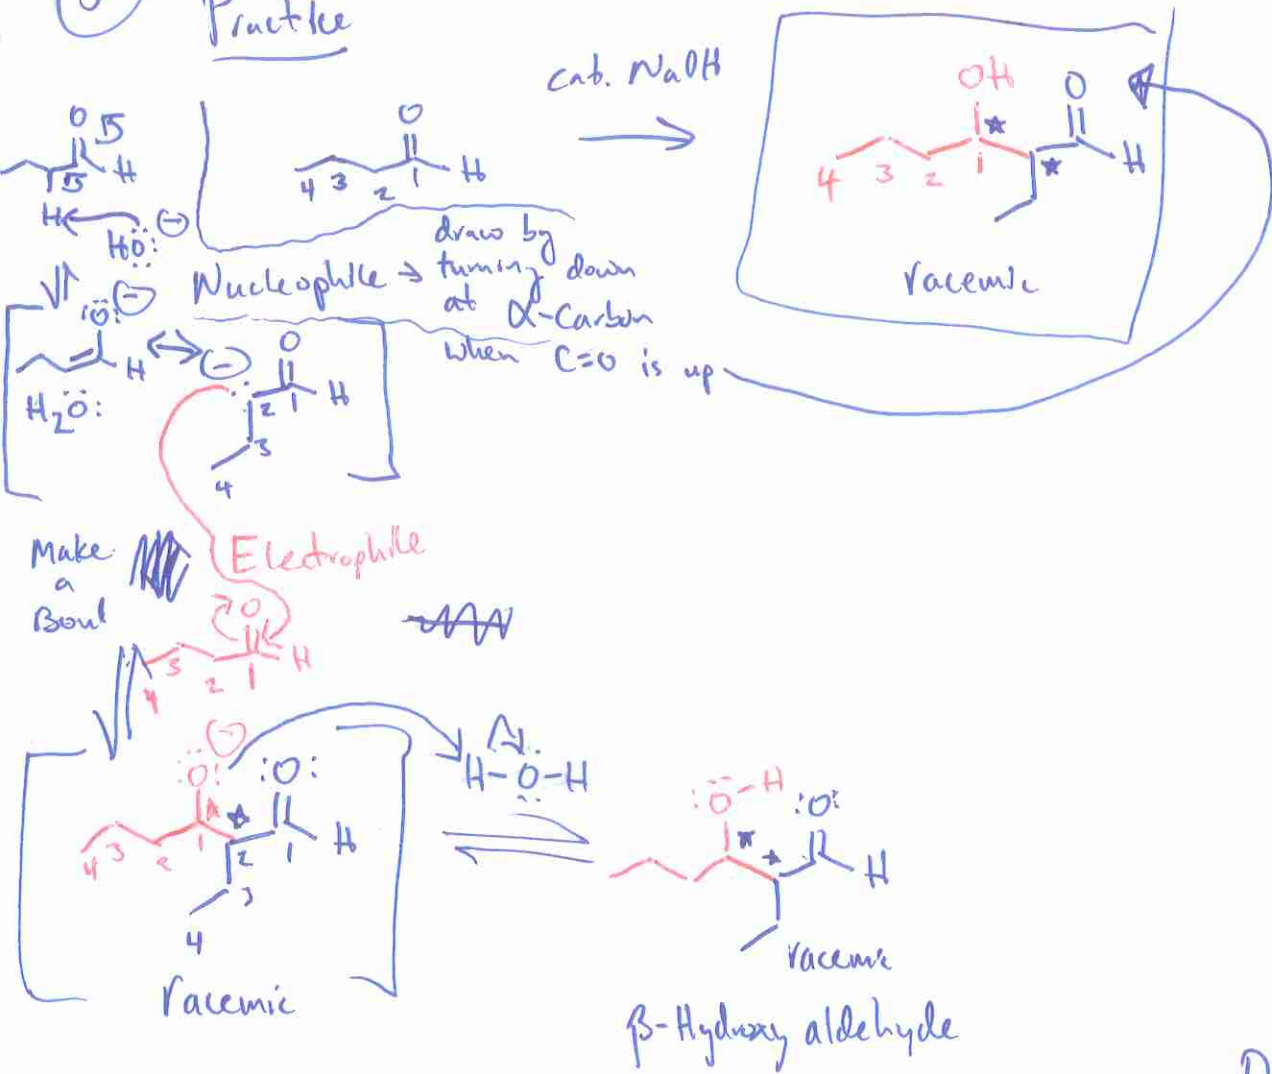 Practice
cat. NaOH
O
H
HO:
O
4 3 2 1 H
OH
O
4 3 2 1 H
racemic
Nucleophile → draw by
turning down
at α-Carbon
when C=O is up
:O:
H
H₂O:
O
2 1 H
3
4
Make
a
Bond
Electrophile
O
4 3 2 1 H
:O: :O:
4 3 2 1 2 1 H
3
4
racemic
H-O-H
:O-H :O:
H
racemic
β-Hydroxy aldehyde